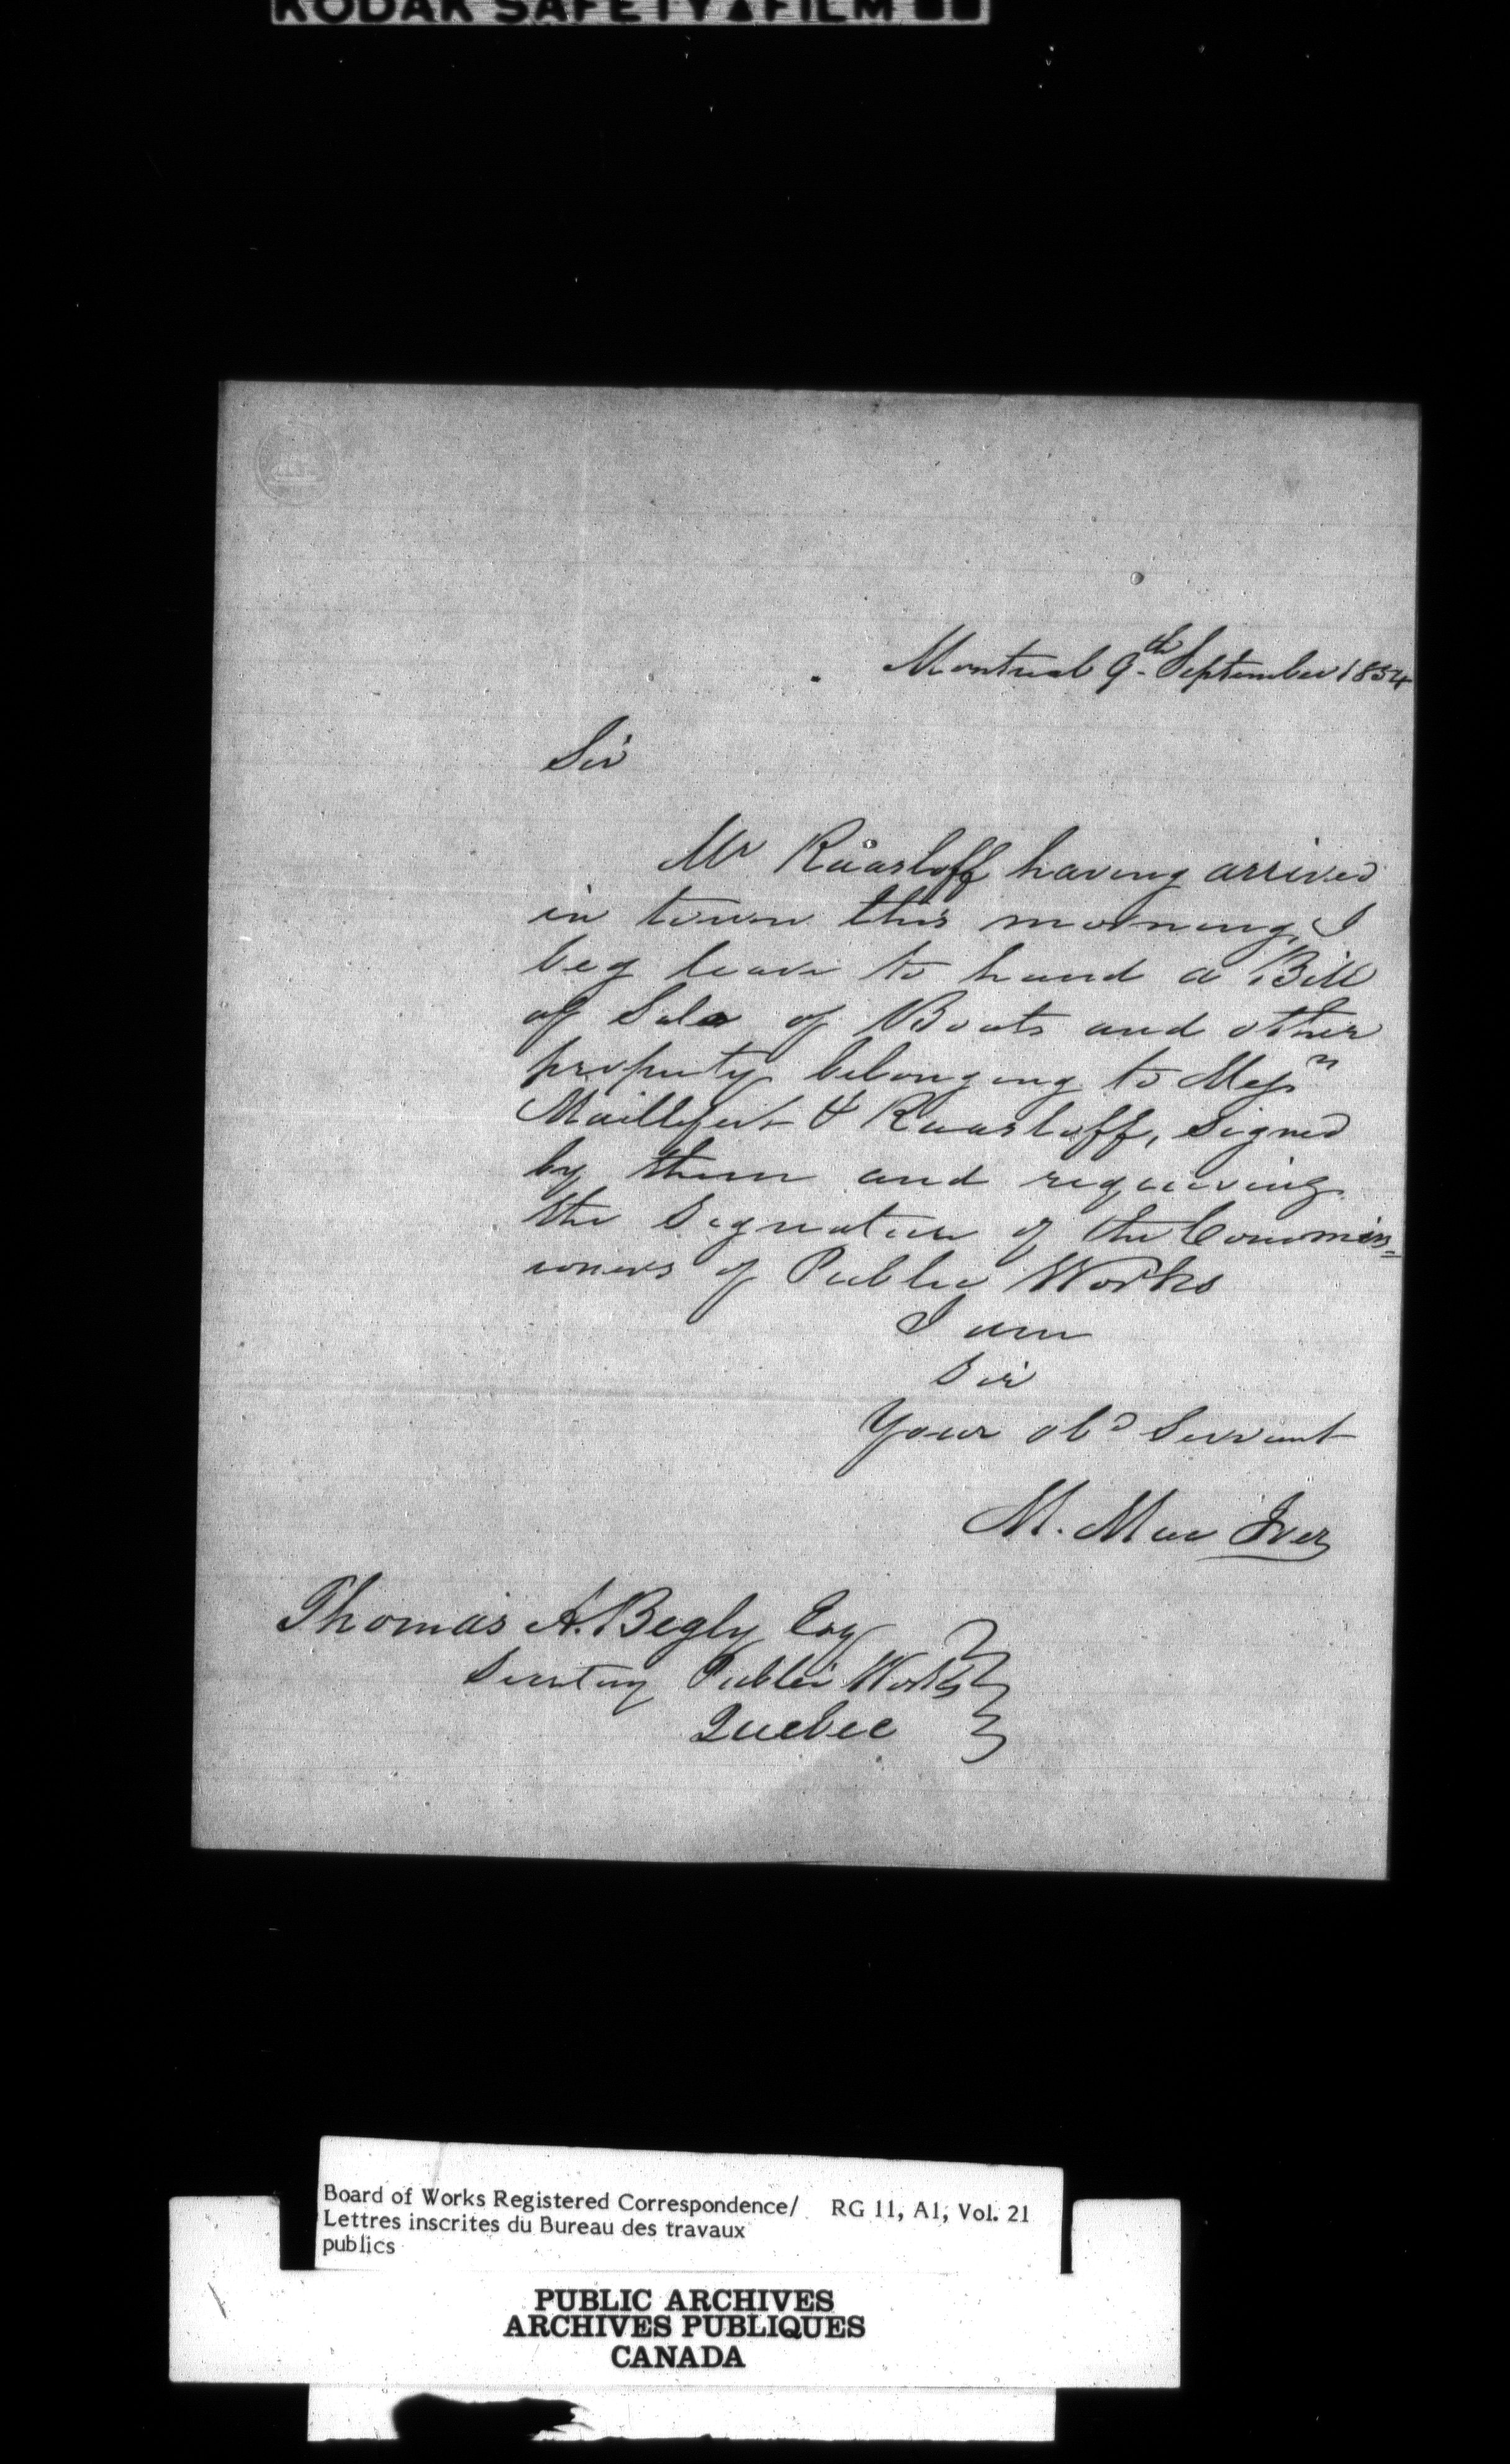 KODAK SAFETY ▲ FILM
Montreal 9th September 1854
Sir
Mr Raasloff having arrived
in town this morning, I
beg leave to hand a Bill
of Sale of Boats and other
property belonging to Messrs
Maillefert & Raasloff, signed
by them and requiring
the signature of the Commiss=
ioners of Public Works
I am
Sir
Your obt Servant
M. Mac Iver
Thomas A. Begly Esq
Secretary Public Works
Quebec
Board of Works Registered Correspondence/ RG 11, A1, Vol. 21
Lettres inscrites du Bureau des travaux
publics
PUBLIC ARCHIVES
ARCHIVES PUBLIQUES
CANADA